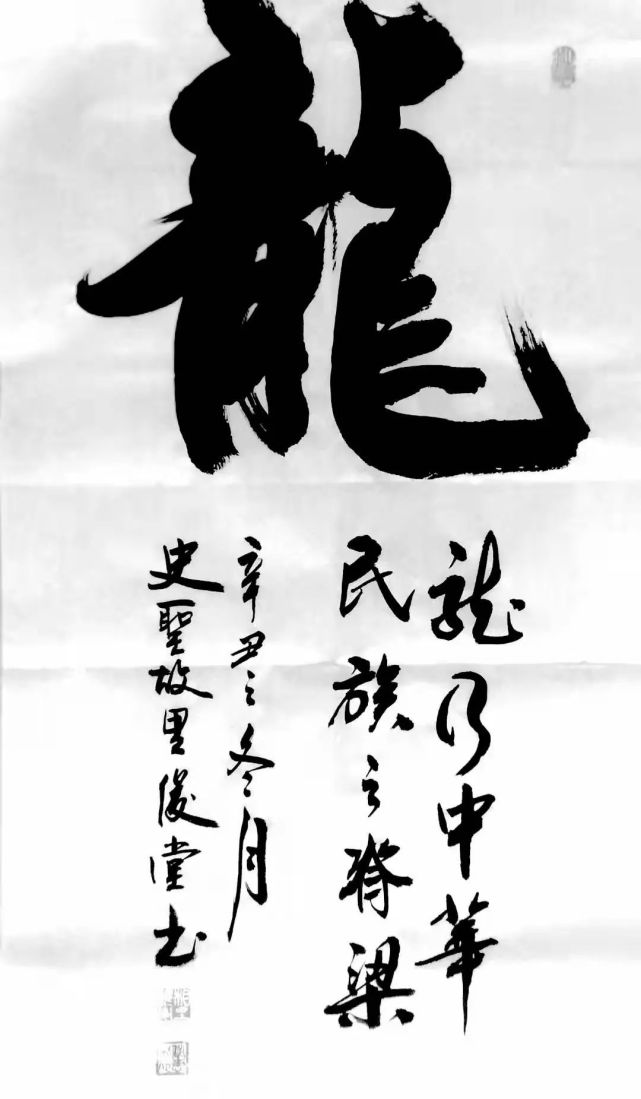 龍
龍乃中華
民族之脊梁
辛丑之冬月
史聖故里俊堂书